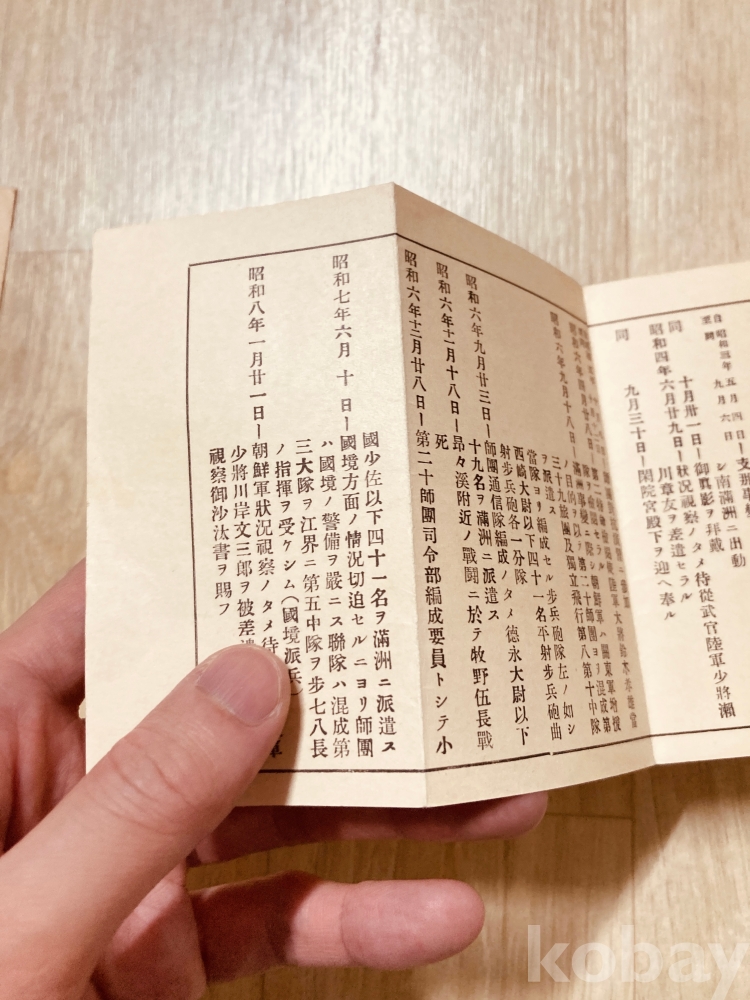 自昭和三年 五月 四日ー支那事變
至同 九月 六日 シ南滿洲ニ出動
同 十月卅一日ー御眞影ヲ拜戴
昭和四年六月廿九日ー狀況視察ノタメ侍從武官陸軍少將瀨
川章友ヲ差遣セラル
同 九月三十日ー閑院宮殿下ヲ迎ヘ奉ル
昭和六年九月十八日ー滿洲事變
朝鮮軍ハ關東軍增援
ノ目的ヲ以テ第二十師團ヨリ混成第
三十九旅團及獨立飛行第八第十中隊
ヲ派遣ス
當隊ヨリ編成セル步兵砲隊左ノ如シ
西崎大尉以下四十一名平射步兵砲曲
射步兵砲各一分隊
昭和六年九月廿三日ー師團通信隊編成ノタメ德永大尉以下
十九名ヲ滿洲ニ派遣ス
昭和六年十一月十八日ー昂々溪附近ノ戰鬪ニ於テ牧野伍長戰
死
昭和六年十二月廿八日ー第二十師團司令部編成要員トシテ小
國少佐以下四十一名ヲ滿洲ニ派遣ス
昭和七年六月 十 日ー國境方面ノ情況切迫セルニヨリ師團
ハ國境ノ警備ヲ嚴ニス聯隊ハ混成第
三大隊ヲ江界ニ第五中隊ヲ步七八長
ノ指揮ヲ受ケシム(國境派兵)
昭和八年一月廿一日ー朝鮮軍狀況視察ノタメ侍
軍
少將川岸文三郎ヲ被差遣
視察御沙汰書ヲ賜フ
kobay